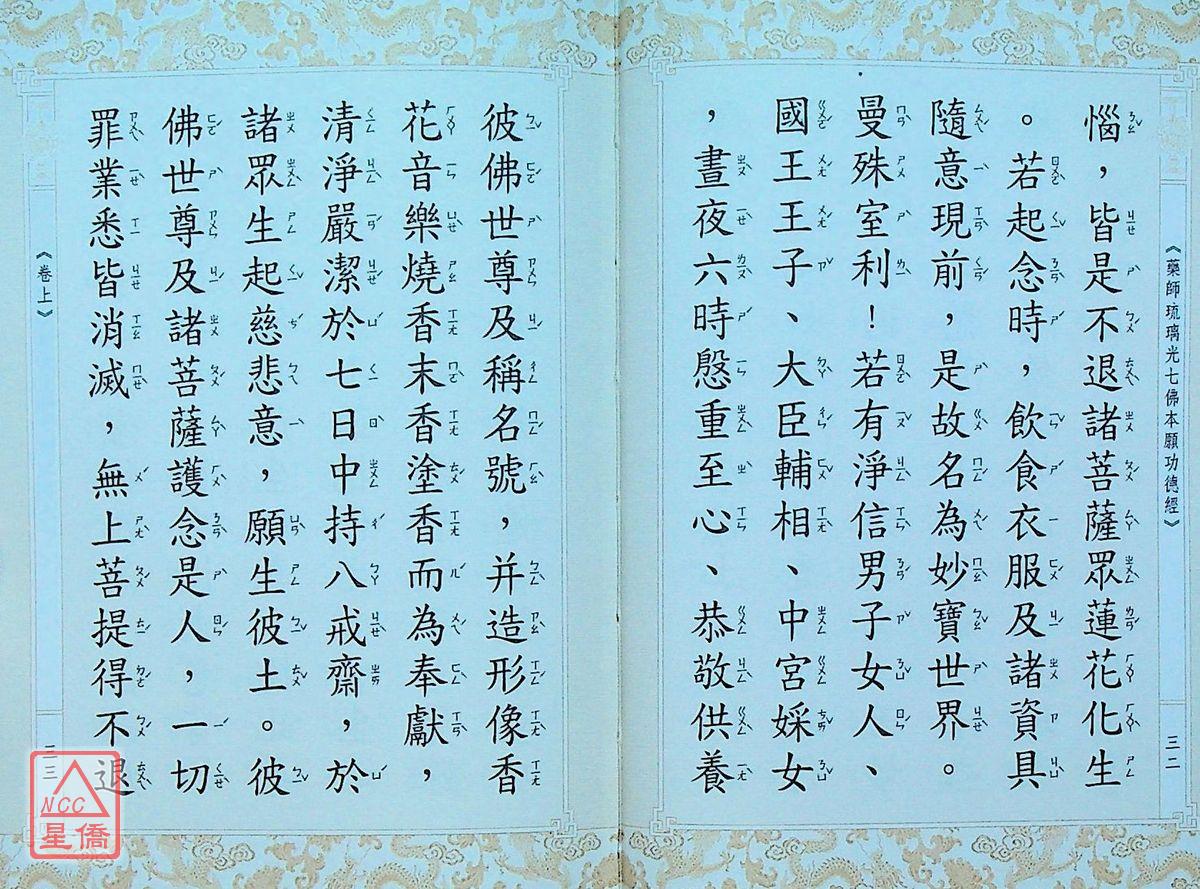 《藥師琉璃光七佛本願功德經》
三二
惱，皆是不退諸菩薩眾蓮花化生
。若起念時，飲食衣服及諸資具
隨意現前，是故名為妙寶世界。
曼殊室利！若有淨信男子女人、
國王王子、大臣輔相、中宮婇女
，晝夜六時慇重至心、恭敬供養
彼佛世尊及稱名號，并造形像香
花音樂燒香末香塗香而為奉獻，
清淨嚴潔於七日中持八戒齋，於
諸眾生起慈悲意，願生彼土。彼
佛世尊及諸菩薩護念是人，一切
罪業悉皆消滅，無上菩提得不退
《卷上》
三三
NCC
星僑